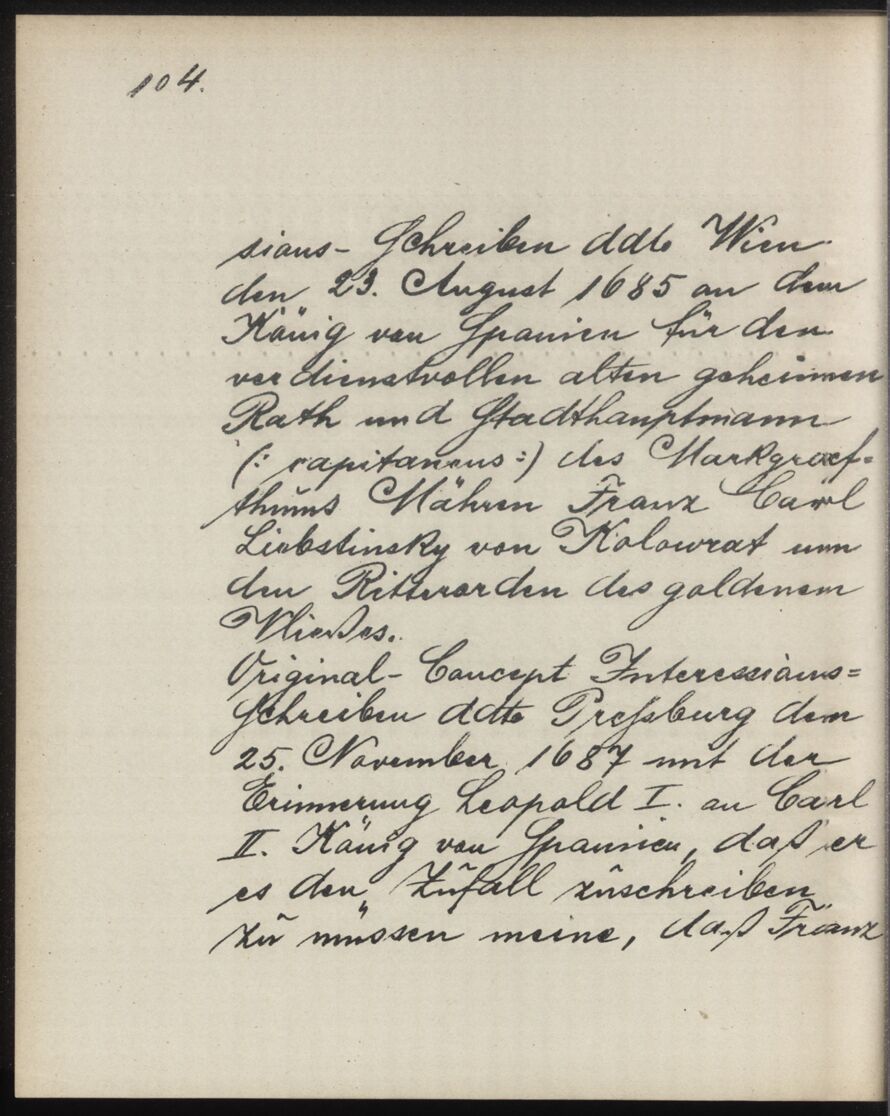 104.
sions- Schreiben ddto Wien
den 23. August 1685 an dem
König von Spanien für den
verdienstvollen alten geheimen
Rath und Stadthauptmann
(: capitaneus :) des Markgraf=
thums Mähren Franz Carl
Liebstinsky von Kolowrat um
den Ritterorden des goldenem
Vließes.
Original- Concept Interessions=
Schreiben ddto Preßburg dem
25. November 1687 mit der
Erinnerung Leopold I. an Carl
II. König von Spanien, daß er
es den Zufall zuschreiben
zu müssen meine, daß Franz